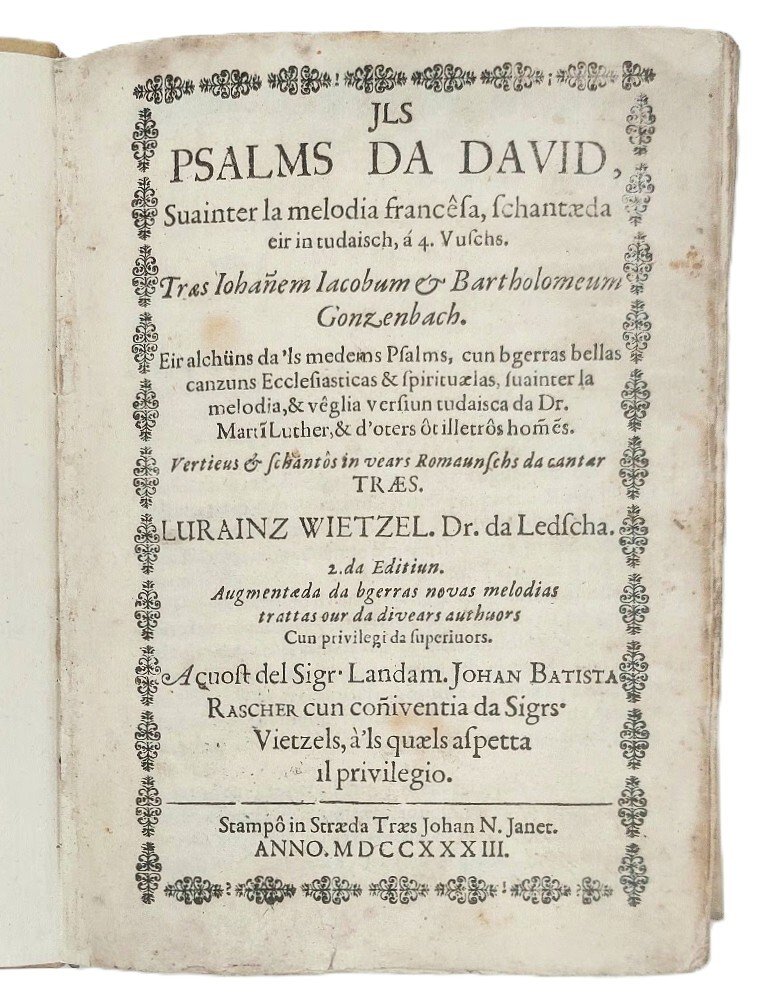 JLS
PSALMS DA DAVID,
Suainter la melodia francêſa, ſchantæda
eir in tudaisch, á 4. Vuſchs.
Træs Iohañem Iacobum & Bartholomeum
Gonzenbach.
Eir alchüns da 'ls medems Pſalms, cun bgerras bellas
canzuns Eccleſiasticas & ſpirituælas, ſuainter la
melodia, & vêglia verſiun tudaisca da Dr.
Martī Luther, & d'oters ôt illetrôs hom̃ẽs.
Vertieus & ſchantôs in vears Romaunſchs da cantær
TRÆS.
LURAINZ WIETZEL. Dr. da Ledſcha.
2.da Editiun.
Augmentæda da bgerras novas melodias
trattas our da divears authuors
Cun privilegi da ſuperiuors.
A çuoſt del Sigr. Landam. JOHAN BATISTA
RASCHER cun coñiventia da Sigrs.
Vietzels, à'ls quæls aſpetta
il privilegio.
Stampô in Stræda Træs Johan N. Janet.
ANNO. MDCCXXXIII.